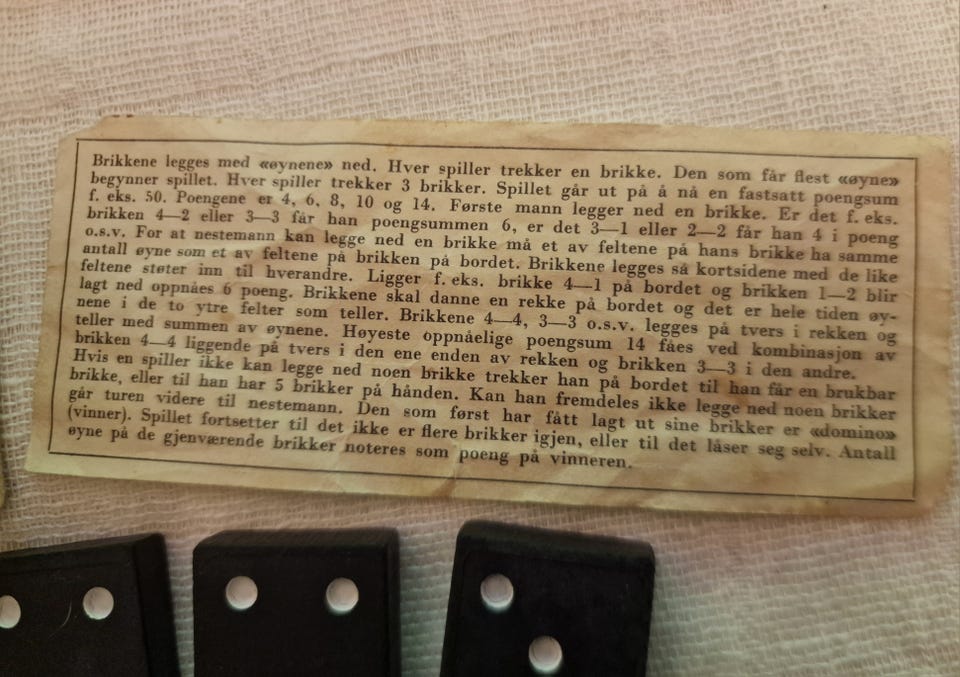 Brikkene legges med «øynene» ned. Hver spiller trekker en brikke. Den som får flest «øyne»
begynner spillet. Hver spiller trekker 3 brikker. Spillet går ut på å nå en fastsatt poengsum
f. eks. 50. Poengene er 4, 6, 8, 10 og 14. Første mann legger ned en brikke. Er det f. eks.
brikken 4—2 eller 3—3 får han poengsummen 6, er det 3—1 eller 2—2 får han 4 i poeng
o.s.v. For at nestemann kan legge ned en brikke må et av feltene på hans brikke ha samme
antall øyne som et av feltene på brikken på bordet. Brikkene legges så kortsidene med de like
feltene støter inn til hverandre. Ligger f. eks. brikke 4—1 på bordet og brikken 1—2 blir
lagt ned oppnåes 6 poeng. Brikkene skal danne en rekke på bordet og det er hele tiden øy-
nene i de to ytre felter som teller. Brikkene 4—4, 3—3 o.s.v. legges på tvers i rekken og
teller med summen av øynene. Høyeste oppnåelige poengsum 14 fåes ved kombinasjon av
brikken 4—4 liggende på tvers i den ene enden av rekken og brikken 3—3 i den andre.
Hvis en spiller ikke kan legge ned noen brikke trekker han på bordet til han får en brukbar
brikke, eller til han har 5 brikker på hånden. Kan han fremdeles ikke legge ned noen brikker
går turen videre til nestemann. Den som først har fått lagt ut sine brikker er «domino»
(vinner). Spillet fortsetter til det ikke er flere brikker igjen, eller til det låser seg selv. Antall
øyne på de gjenværende brikker noteres som poeng på vinneren.